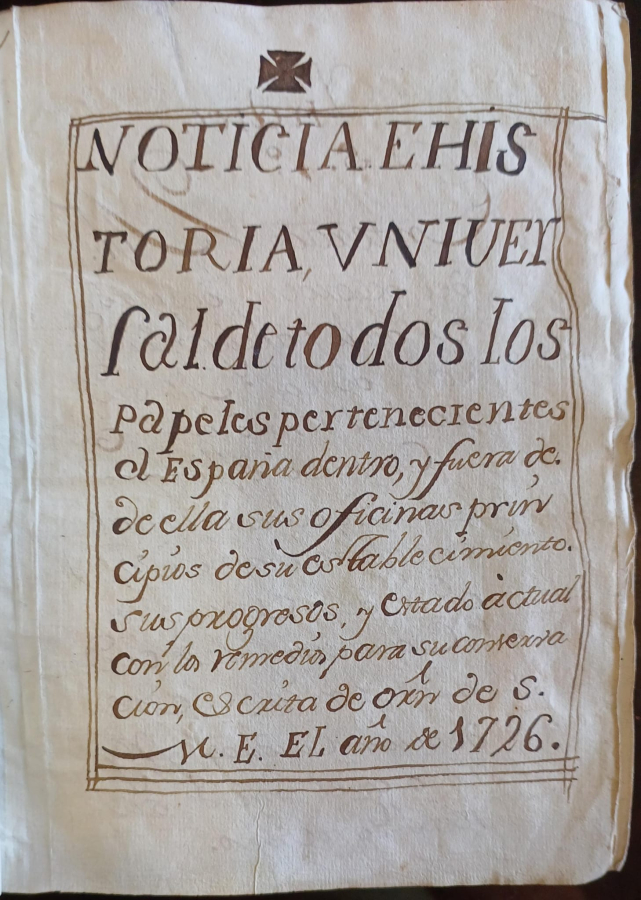 NOTICIA EHIS
TORIA, VNIUER
sal de todos los
papeles pertenecientes
a España dentro, y fuera de.
de ella sus oficinas prin
cipios de su establecimiento.
sus progresos, y estado actual
con los remedios para su conserva
cion, escrita de orn de S.
M. E. EL año de 1726.